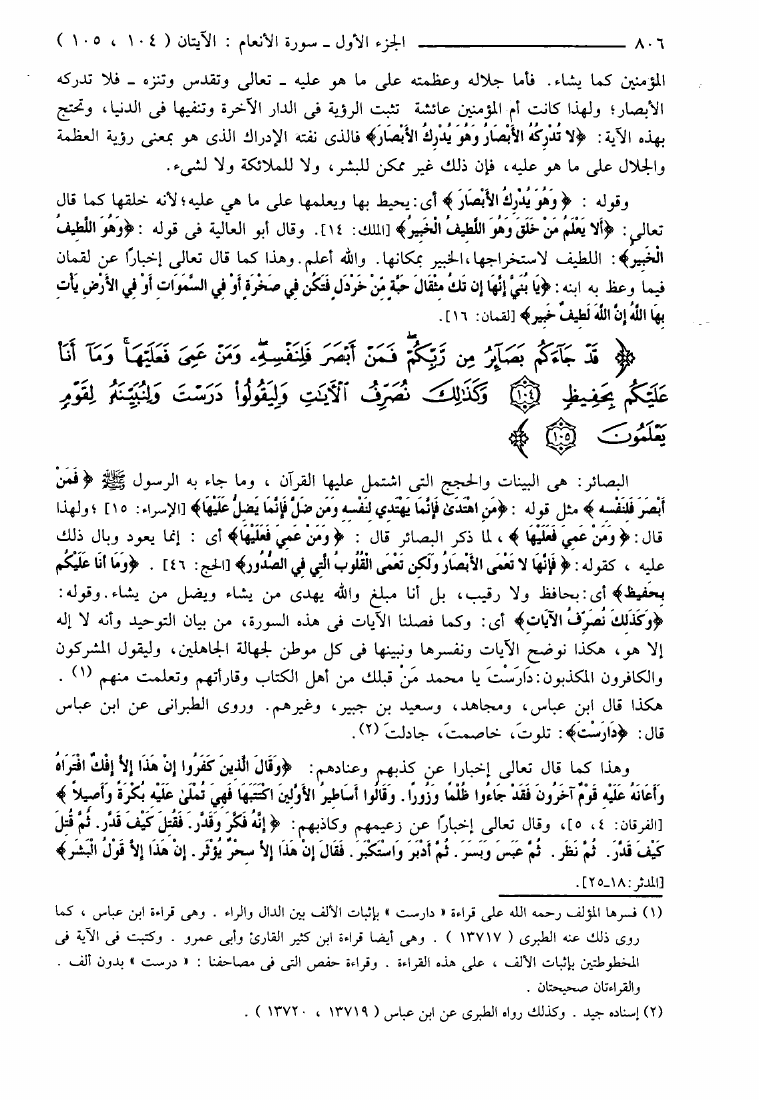 ٨٠٦ ــــــــــــــــ الجزء الأول ـ سورة الأنعام : الآيتان ( ١٠٤ ، ١٠٥ )
المؤمنين كما يشاء. فأما جلاله وعظمته على ما هو عليه ـ تعالى وتقدس وتنزه ـ فلا تدركه
الأبصار؛ ولهذا كانت أم المؤمنين عائشة تثبت الرؤية فى الدار الآخرة وتنفيها فى الدنيا، وتحتج
بهذه الآية: ﴿لا تُدْرِكُهُ الأَبْصَارُ وَهُوَ يُدْرِكُ الأَبْصَارَ﴾ فالذى نفته الإدراك الذى هو بمعنى رؤية العظمة
والجلال على ما هو عليه، فإن ذلك غير ممكن للبشر، ولا للملائكة ولا لشىء.
وقوله : ﴿ وَهُوَ يُدْرِكُ الأَبْصَارَ ﴾ أى: يحيط بها ويعلمها على ما هي عليه؛لأنه خلقها كما قال
تعالى: ﴿أَلا يَعْلَمُ مَنْ خَلَقَ وَهُوَ اللَّطِيفُ الْخَبِيرُ﴾ [الملك: ١٤]. وقال أبو العالية فى قوله :﴿وَهُوَ اللَّطِيفُ
الْخَبِيرُ﴾: اللطيف لاستخراجها،الخبير بمكانها. والله أعلم.وهذا كما قال تعالى إخبارًا عن لقمان
فيما وعظ به ابنه: ﴿يَا بُنَيَّ إِنَّهَا إِن تَكُ مِثْقَالَ حَبَّةٍ مِّنْ خَرْدَلٍ فَتَكُن فِي صَخْرَةٍ أَوْ فِي السَّمَوَاتِ أَوْ فِي الأَرْضِ يَأْتِ
بِهَا اللَّهُ إِنَّ اللَّهَ لَطِيفٌ خَبِيرٌ﴾ [لقمان: ١٦].
﴿ قَدْ جَآءَكُم بَصَآئِرُ مِن رَّبِّكُمْ ۖ فَمَنْ أَبْصَرَ فَلِنَفْسِهِۦ ۖ وَمَنْ عَمِىَ فَعَلَيْهَا ۚ وَمَآ أَنَا۠
عَلَيْكُم بِحَفِيظٍ (١٠٤) وَكَذَٰلِكَ نُصَرِّفُ ٱلْـَٔايَٰتِ وَلِيَقُولُوا۟ دَرَسْتَ وَلِنُبَيِّنَهُۥ لِقَوْمٍ
يَعْلَمُونَ (١٠٥) ﴾
البصائر: هى البينات والحجج التى اشتمل عليها القرآن ، وما جاء به الرسول ﷺ ﴿ فَمَنْ
أَبْصَرَ فَلِنَفْسِهِ ﴾ مثل قوله :﴿مَنِ اهْتَدَىٰ فَإِنَّمَا يَهْتَدِي لِنَفْسِهِ وَمَن ضَلَّ فَإِنَّمَا يَضِلُّ عَلَيْهَا﴾ [الإسراء: ١٥] ؛ولهذا
قال:﴿ وَمَنْ عَمِيَ فَعَلَيْهَا ﴾ ، لما ذكر البصائر قال : ﴿ وَمَنْ عَمِيَ فَعَلَيْهَا﴾ أى : إنما يعود وبال ذلك
عليه ، كقوله:﴿ فَإِنَّهَا لا تَعْمَى الأَبْصَارُ وَلَكِن تَعْمَى الْقُلُوبُ الَّتِي فِي الصُّدُورِ﴾ [الحج: ٤٦] . ﴿وَمَا أَنَا عَلَيْكُم
بِحَفِيظٍ﴾ أى:بحافظ ولا رقيب، بل أنا مبلغ والله يهدى من يشاء ويضل من يشاء.وقوله:
﴿وَكَذَلِكَ نُصَرِّفُ الآيَاتِ﴾ أى: وكما فصلنا الآيات فى هذه السورة، من بيان التوحيد وأنه لا إله
إلا هو، هكذا نوضح الآيات ونفسرها ونبينها فى كل موطن لجهالة الجاهلين، وليقول المشركون
والكافرون المكذبون:دَارَسْتَ يا محمد مَنْ قبلك من أهل الكتاب وقارأتهم وتعلمت منهم (١) .
هكذا قال ابن عباس، ومجاهد، وسعيد بن جبير، وغيرهم. وروى الطبرانى عن ابن عباس
قال: ﴿دَارَسْتَ﴾: تلوت، خاصمت، جادلت (٢).
وهذا كما قال تعالى إخبارا عن كذبهم وعنادهم: ﴿وَقَالَ الَّذِينَ كَفَرُوا إِنْ هَذَا إِلاَّ إِفْكٌ افْتَرَاهُ
وَأَعَانَهُ عَلَيْهِ قَوْمٌ آخَرُونَ فَقَدْ جَاءُوا ظُلْمًا وَزُورًا. وَقَالُوا أَسَاطِيرُ الأَوَّلِينَ اكْتَتَبَهَا فَهِيَ تُمْلَىٰ عَلَيْهِ بُكْرَةً وَأَصِيلاً ﴾
[الفرقان: ٤، ٥]، وقال تعالى إخبارًا عن زعيمهم وكاذبهم: ﴿ إِنَّهُ فَكَّرَ وَقَدَّرَ. فَقُتِلَ كَيْفَ قَدَّرَ. ثُمَّ قُتِلَ
كَيْفَ قَدَّرَ. ثُمَّ نَظَرَ. ثُمَّ عَبَسَ وَبَسَرَ. ثُمَّ أَدْبَرَ وَاسْتَكْبَرَ. فَقَالَ إِنْ هَذَا إِلاَّ سِحْرٌ يُؤْثَرُ. إِنْ هَذَا إِلاَّ قَوْلُ الْبَشَرِ﴾
[المدثر:١٨ـ٢٥].
(١) فسرها المؤلف رحمه الله على قراءة « دارست » بإثبات الألف بين الدال والراء . وهى قراءة ابن عباس ، كما
روى ذلك عنه الطبرى ( ١٣٧١٧ ) . وهى أيضا قراءة ابن كثير القارئ وأبى عمرو . وكتبت فى الآية فى
المخطوطتين بإثبات الألف ، على هذه القراءة . وقراءة حفص التى فى مصاحفنا : « درست » بدون ألف .
والقراءتان صحيحتان .
(٢) إسناده جيد . وكذلك رواه الطبرى عن ابن عباس ( ١٣٧١٩ ، ١٣٧٢٠ ) .